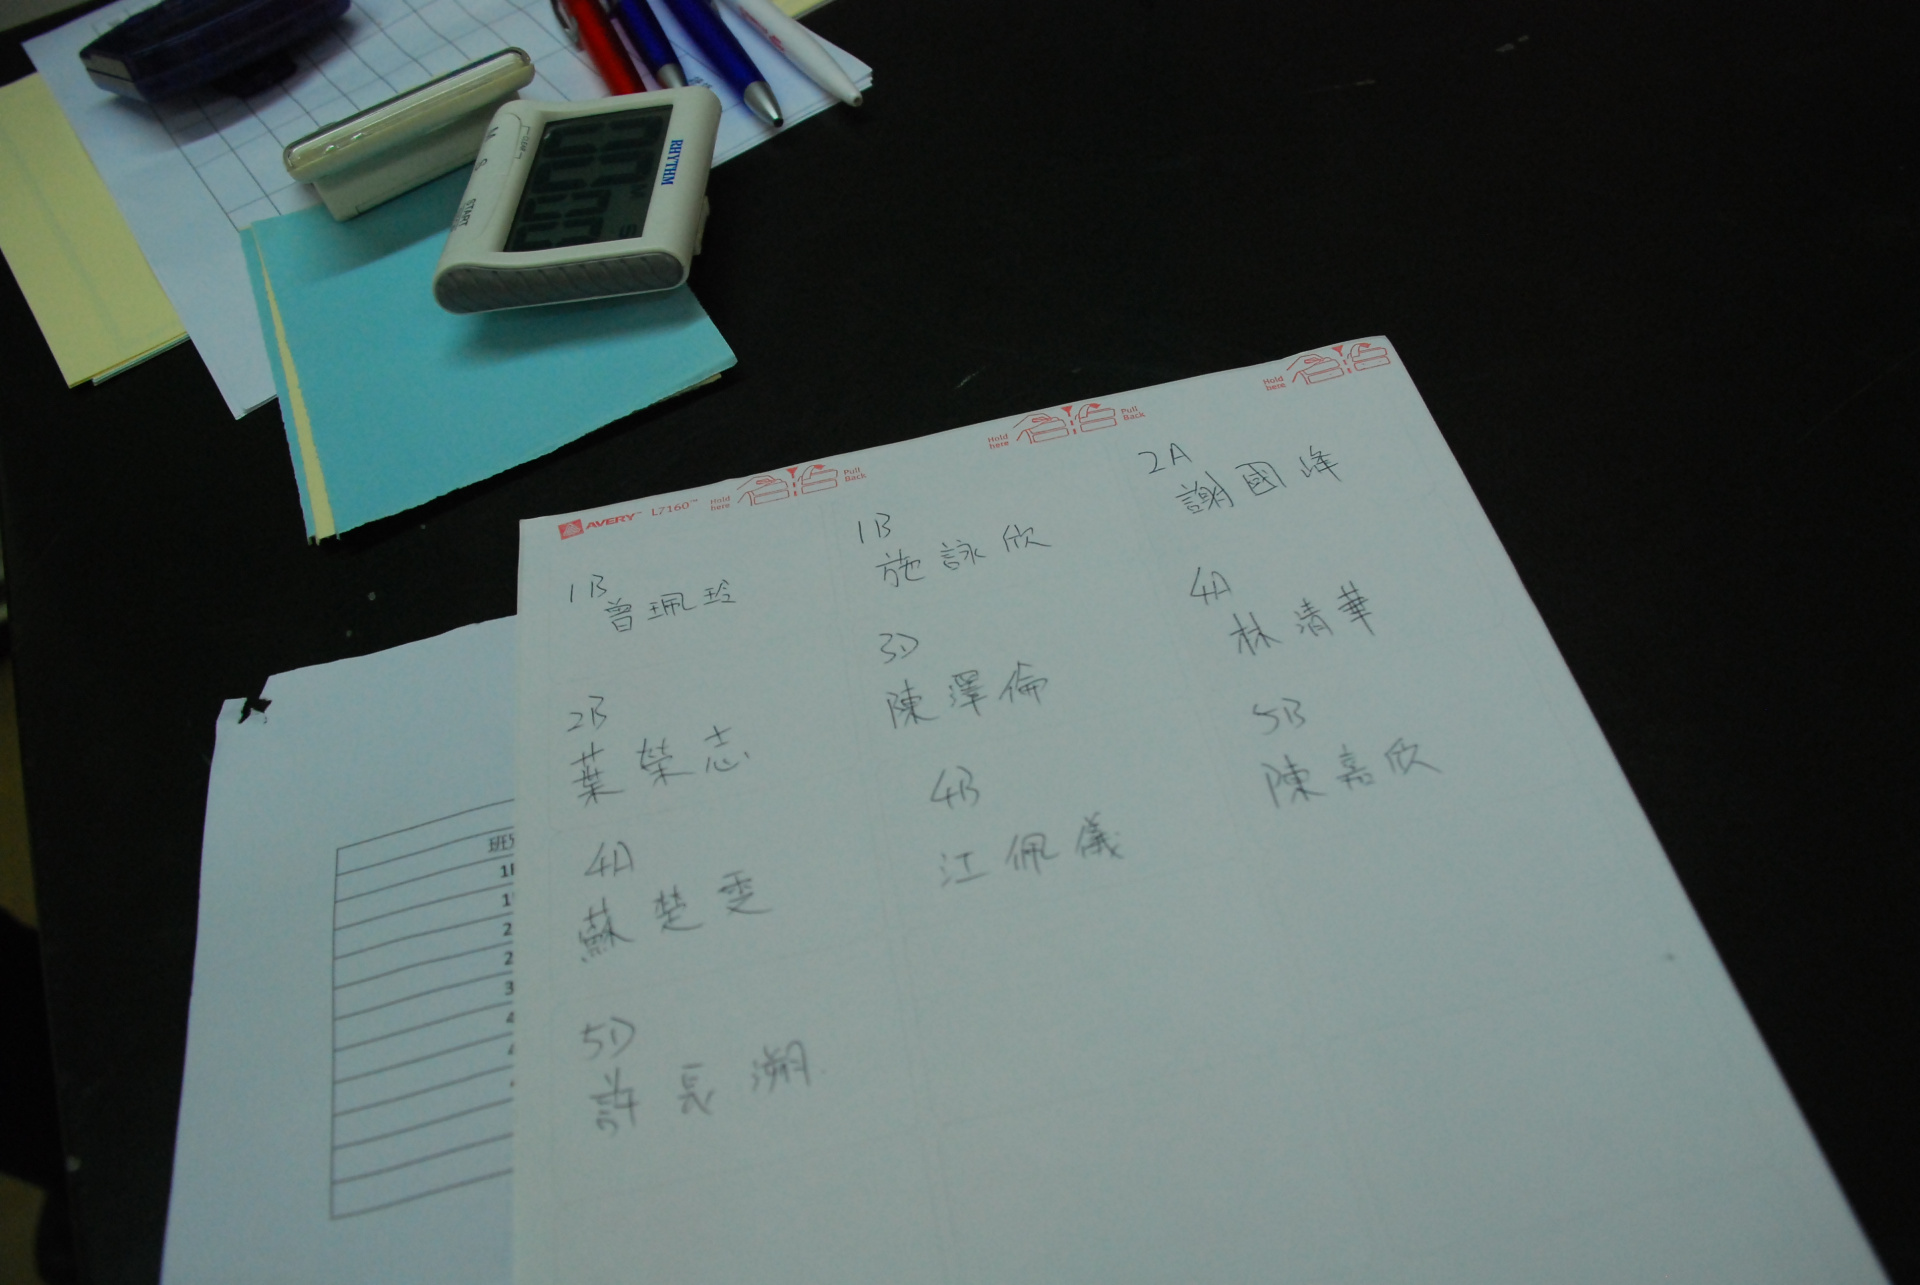 RHYTHM
M
S
START
AVERY™ L7160™
Hold here
Pull Back
Hold here
Pull Back
Hold here
1B
曾珮玲
1B
施詠欣
2A
謝國峰
2B
葉榮志
3D
陳澤倫
4A
林清華
4A
蘇楚雯
4B
江佩儀
5B
陳嘉欣
5D
許長溯